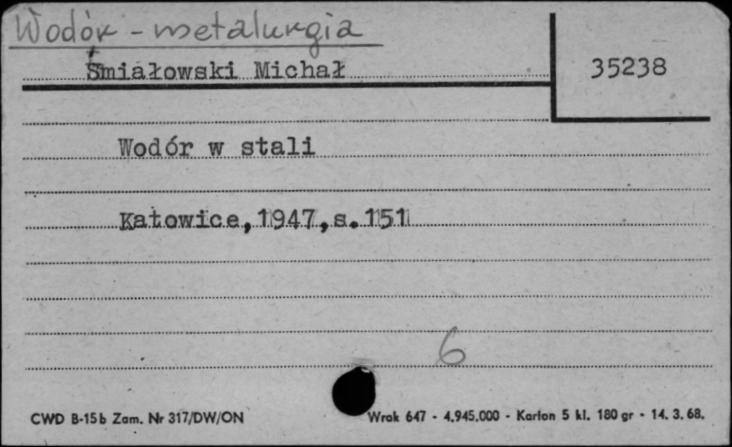 Wodór - metalurgia
Śmiałowski Michał
35238
Wodór w stali
Katowice, 1947, s. 151
6
CWD B-15b Zam. Nr 317/DW/ON
Wrak 647 - 4.945.000 - Karton 5 kl. 180 gr - 14. 3. 68.